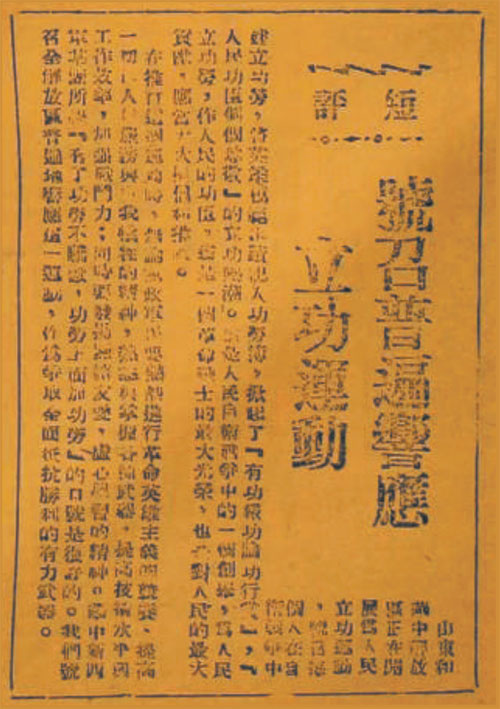 短評
號召普遍響應
立功運動
山東和
華中解放
區正在開
展為人民
立功運動
，號召每
個人在自
衛戰爭中
建立功勞，將英雄記入功勞簿，掀起了『有功報功論功行賞』，『
人民功臣個個恭敬』的立功熱潮。這是人民自衛戰爭中的一個創舉，為人民
立功勞，作人民的功臣，這是一個革命戰士的最大光榮，也是對人民的最大
貢獻，應當大大提倡和獎勵。
在推行這個運動時，無論黨政軍民要進行革命英雄主義的競賽，提高
一切人民服務與自我犧牲的精神，熟悉與掌握各種武器，提高技術水平與
工作效率，加強戰鬥力；同時要發揚團結友愛，虛心學習的精神。華中新四
軍某部所提『有了功勞不驕傲，功勞上面加功勞』的口號是很好的。我們號
召全解放區普遍地響應這一運動，作為爭取全面抵抗勝利的有力武器。